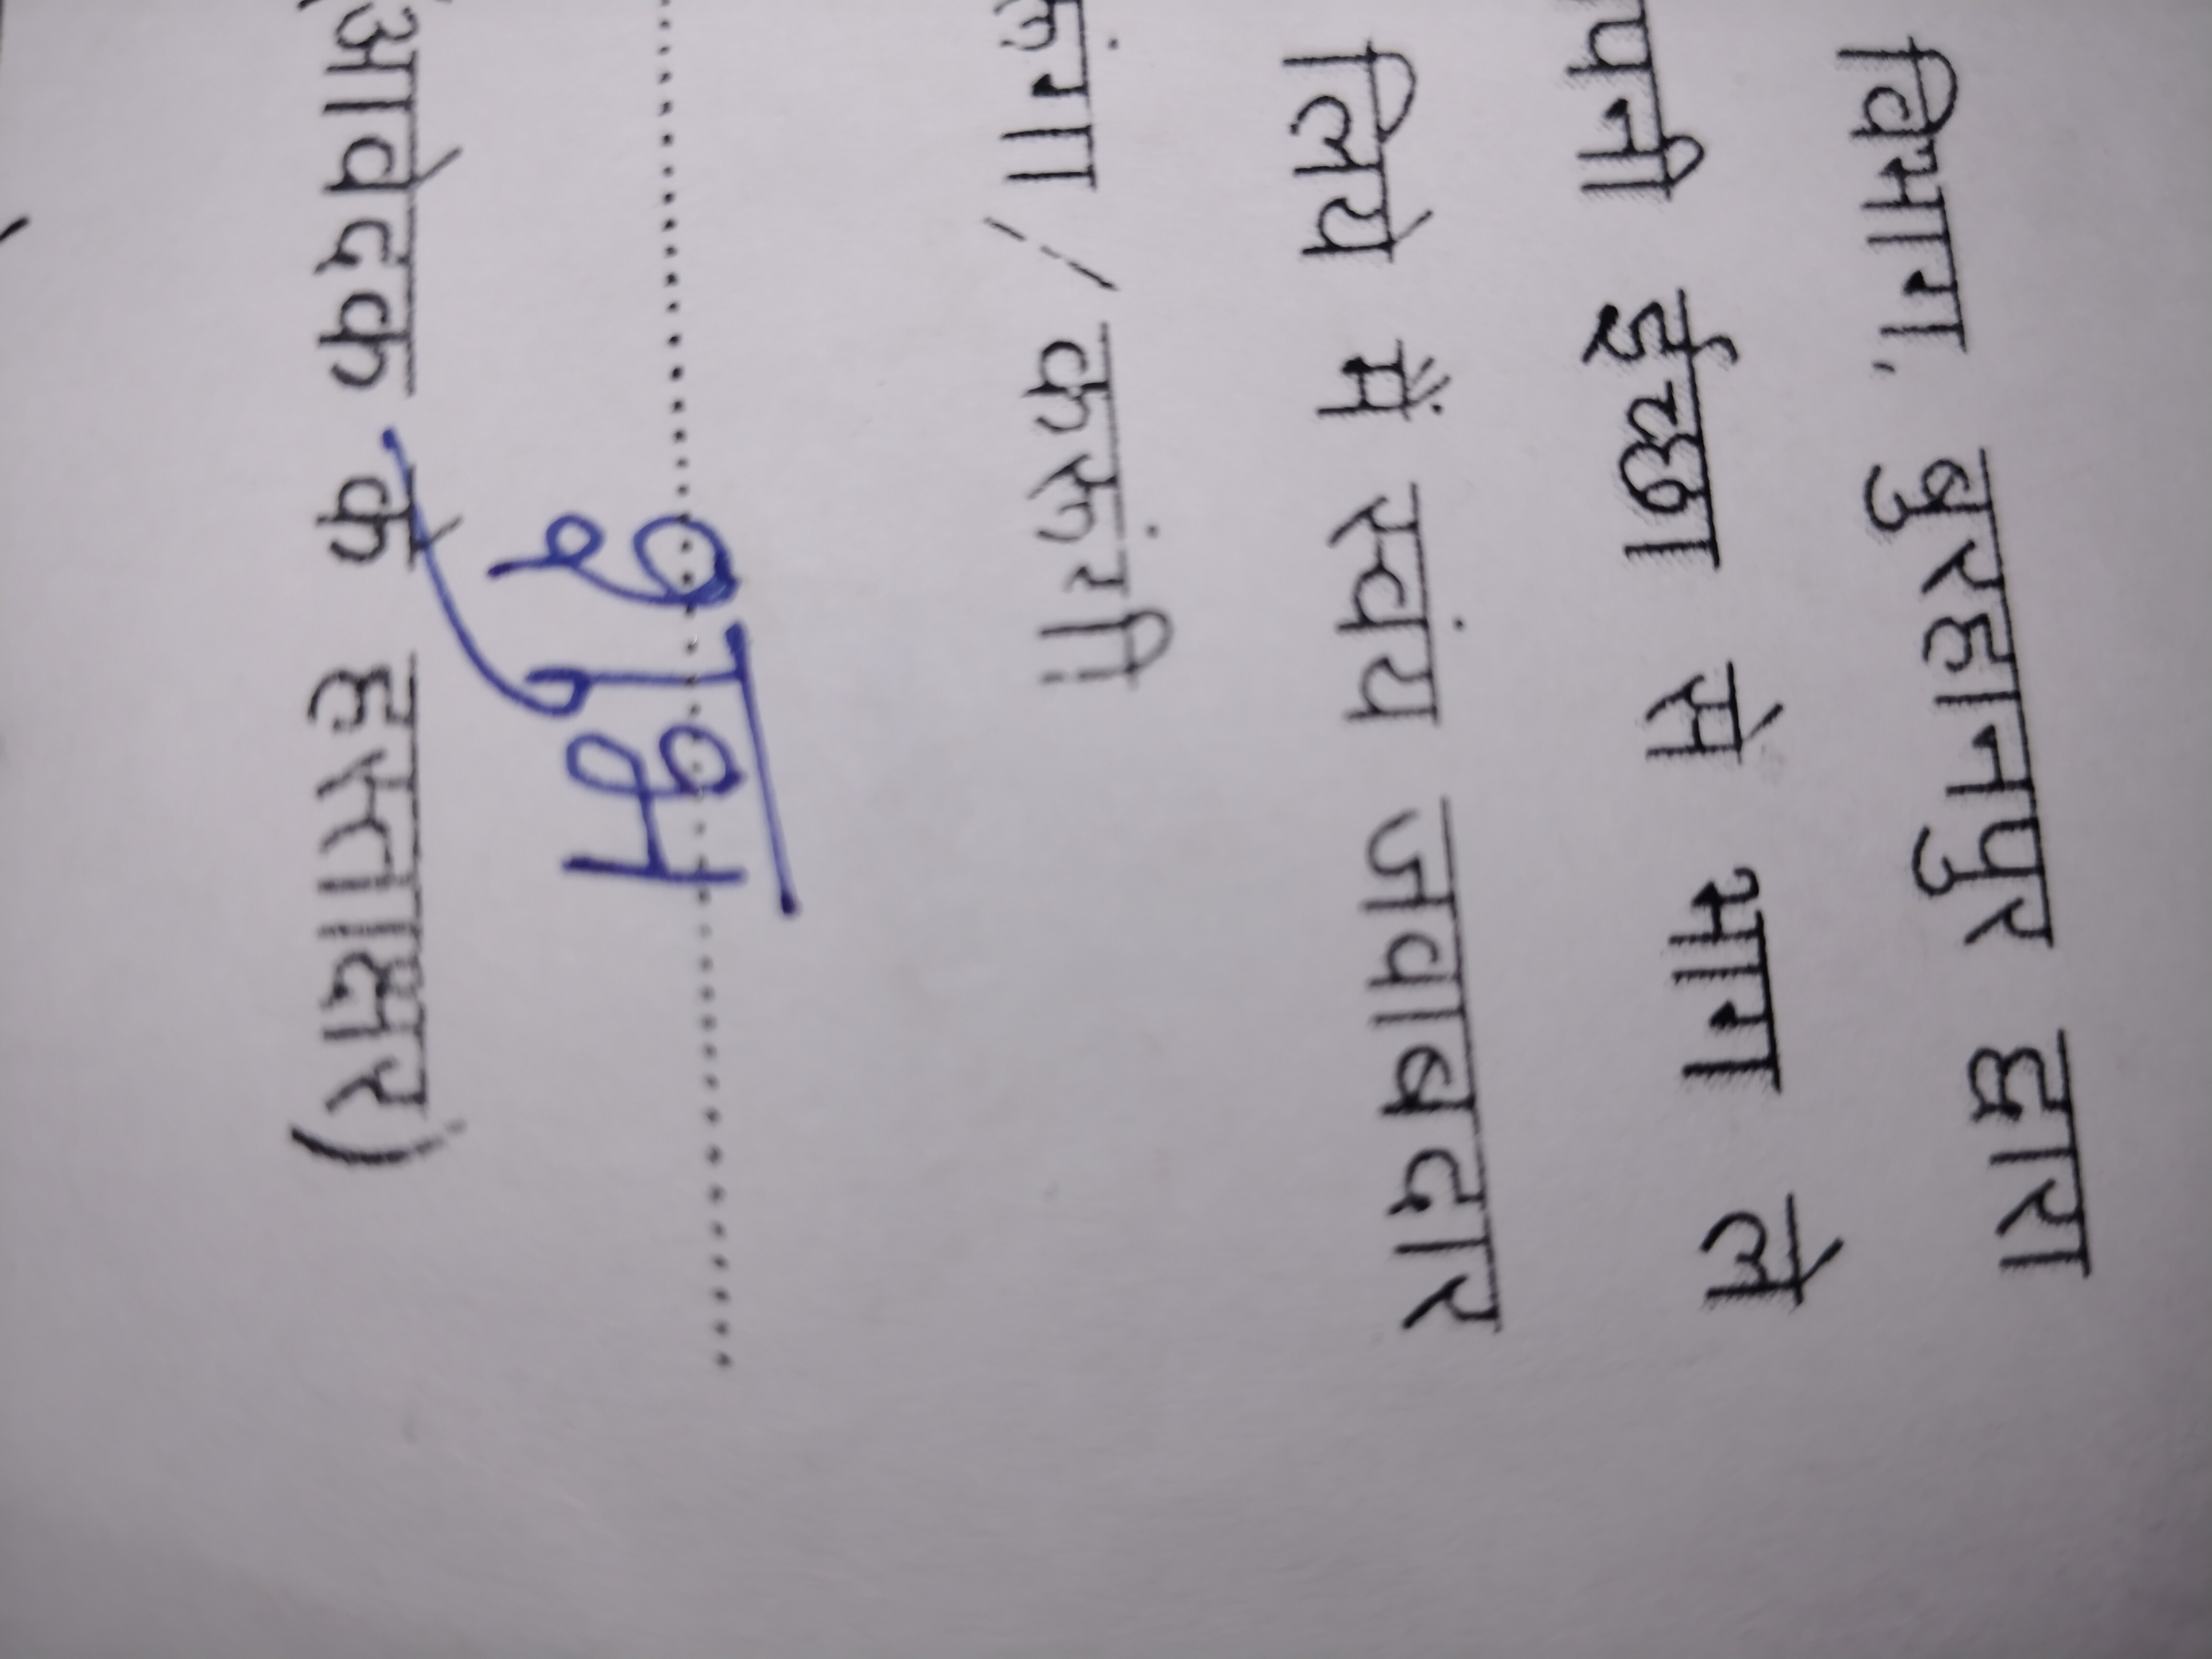 विभाग, बुरहानपुर द्वारा
पनी ईच्छा से भाग ले
लिये मैं स्वंय जवाबदार
रूंगा / करूंगी
शुभम
(आवेदक के हस्ताक्षर)